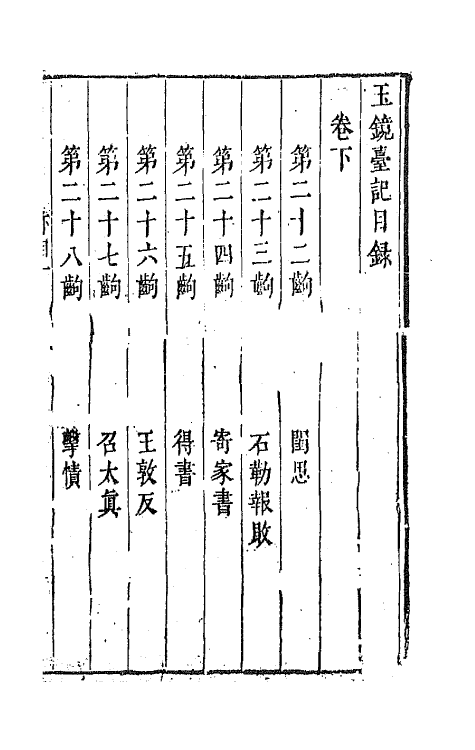 玉鏡臺記目錄
卷下
第二十二齣 閨思
第二十三齣 石勒報敗
第二十四齣 寄家書
第二十五齣 得書
第二十六齣 王敦反
第二十七齣 召太眞
第二十八齣 擊憤